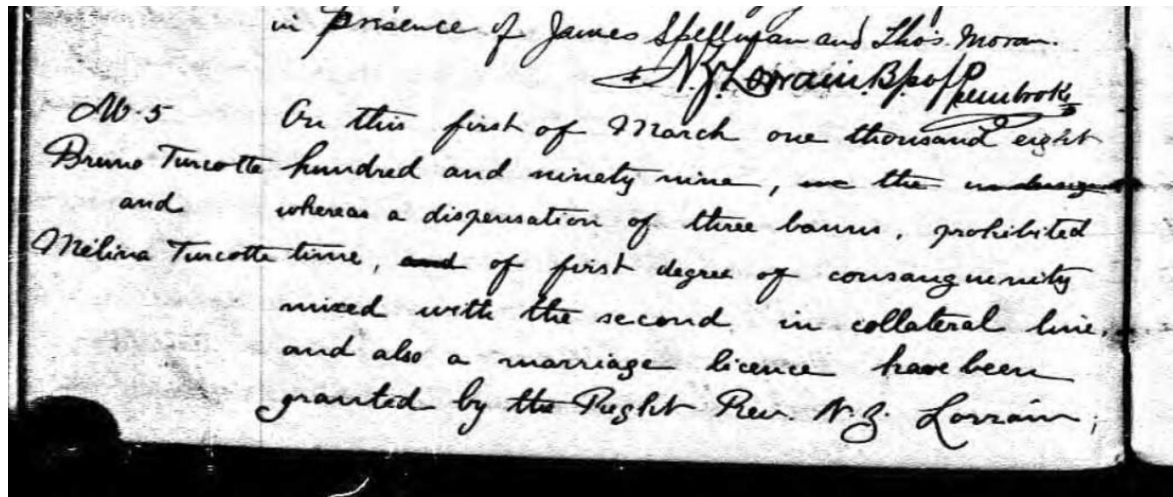 in presence of James Spellman and Thos. Moran.
+ N. Z. Lorrain. Bp of Pembroke
M. 5
Bruno Turcotte
and
Mélina Turcotte
On this first of March one thousand eight
hundred and ninety nine, we the undersigned
whereas a dispensation of three banns, prohibited
time, and of first degree of consanguinity
mixed with the second in collateral line,
and also a marriage licence have been
granted by the Right Rev. N. Z. Lorrain,